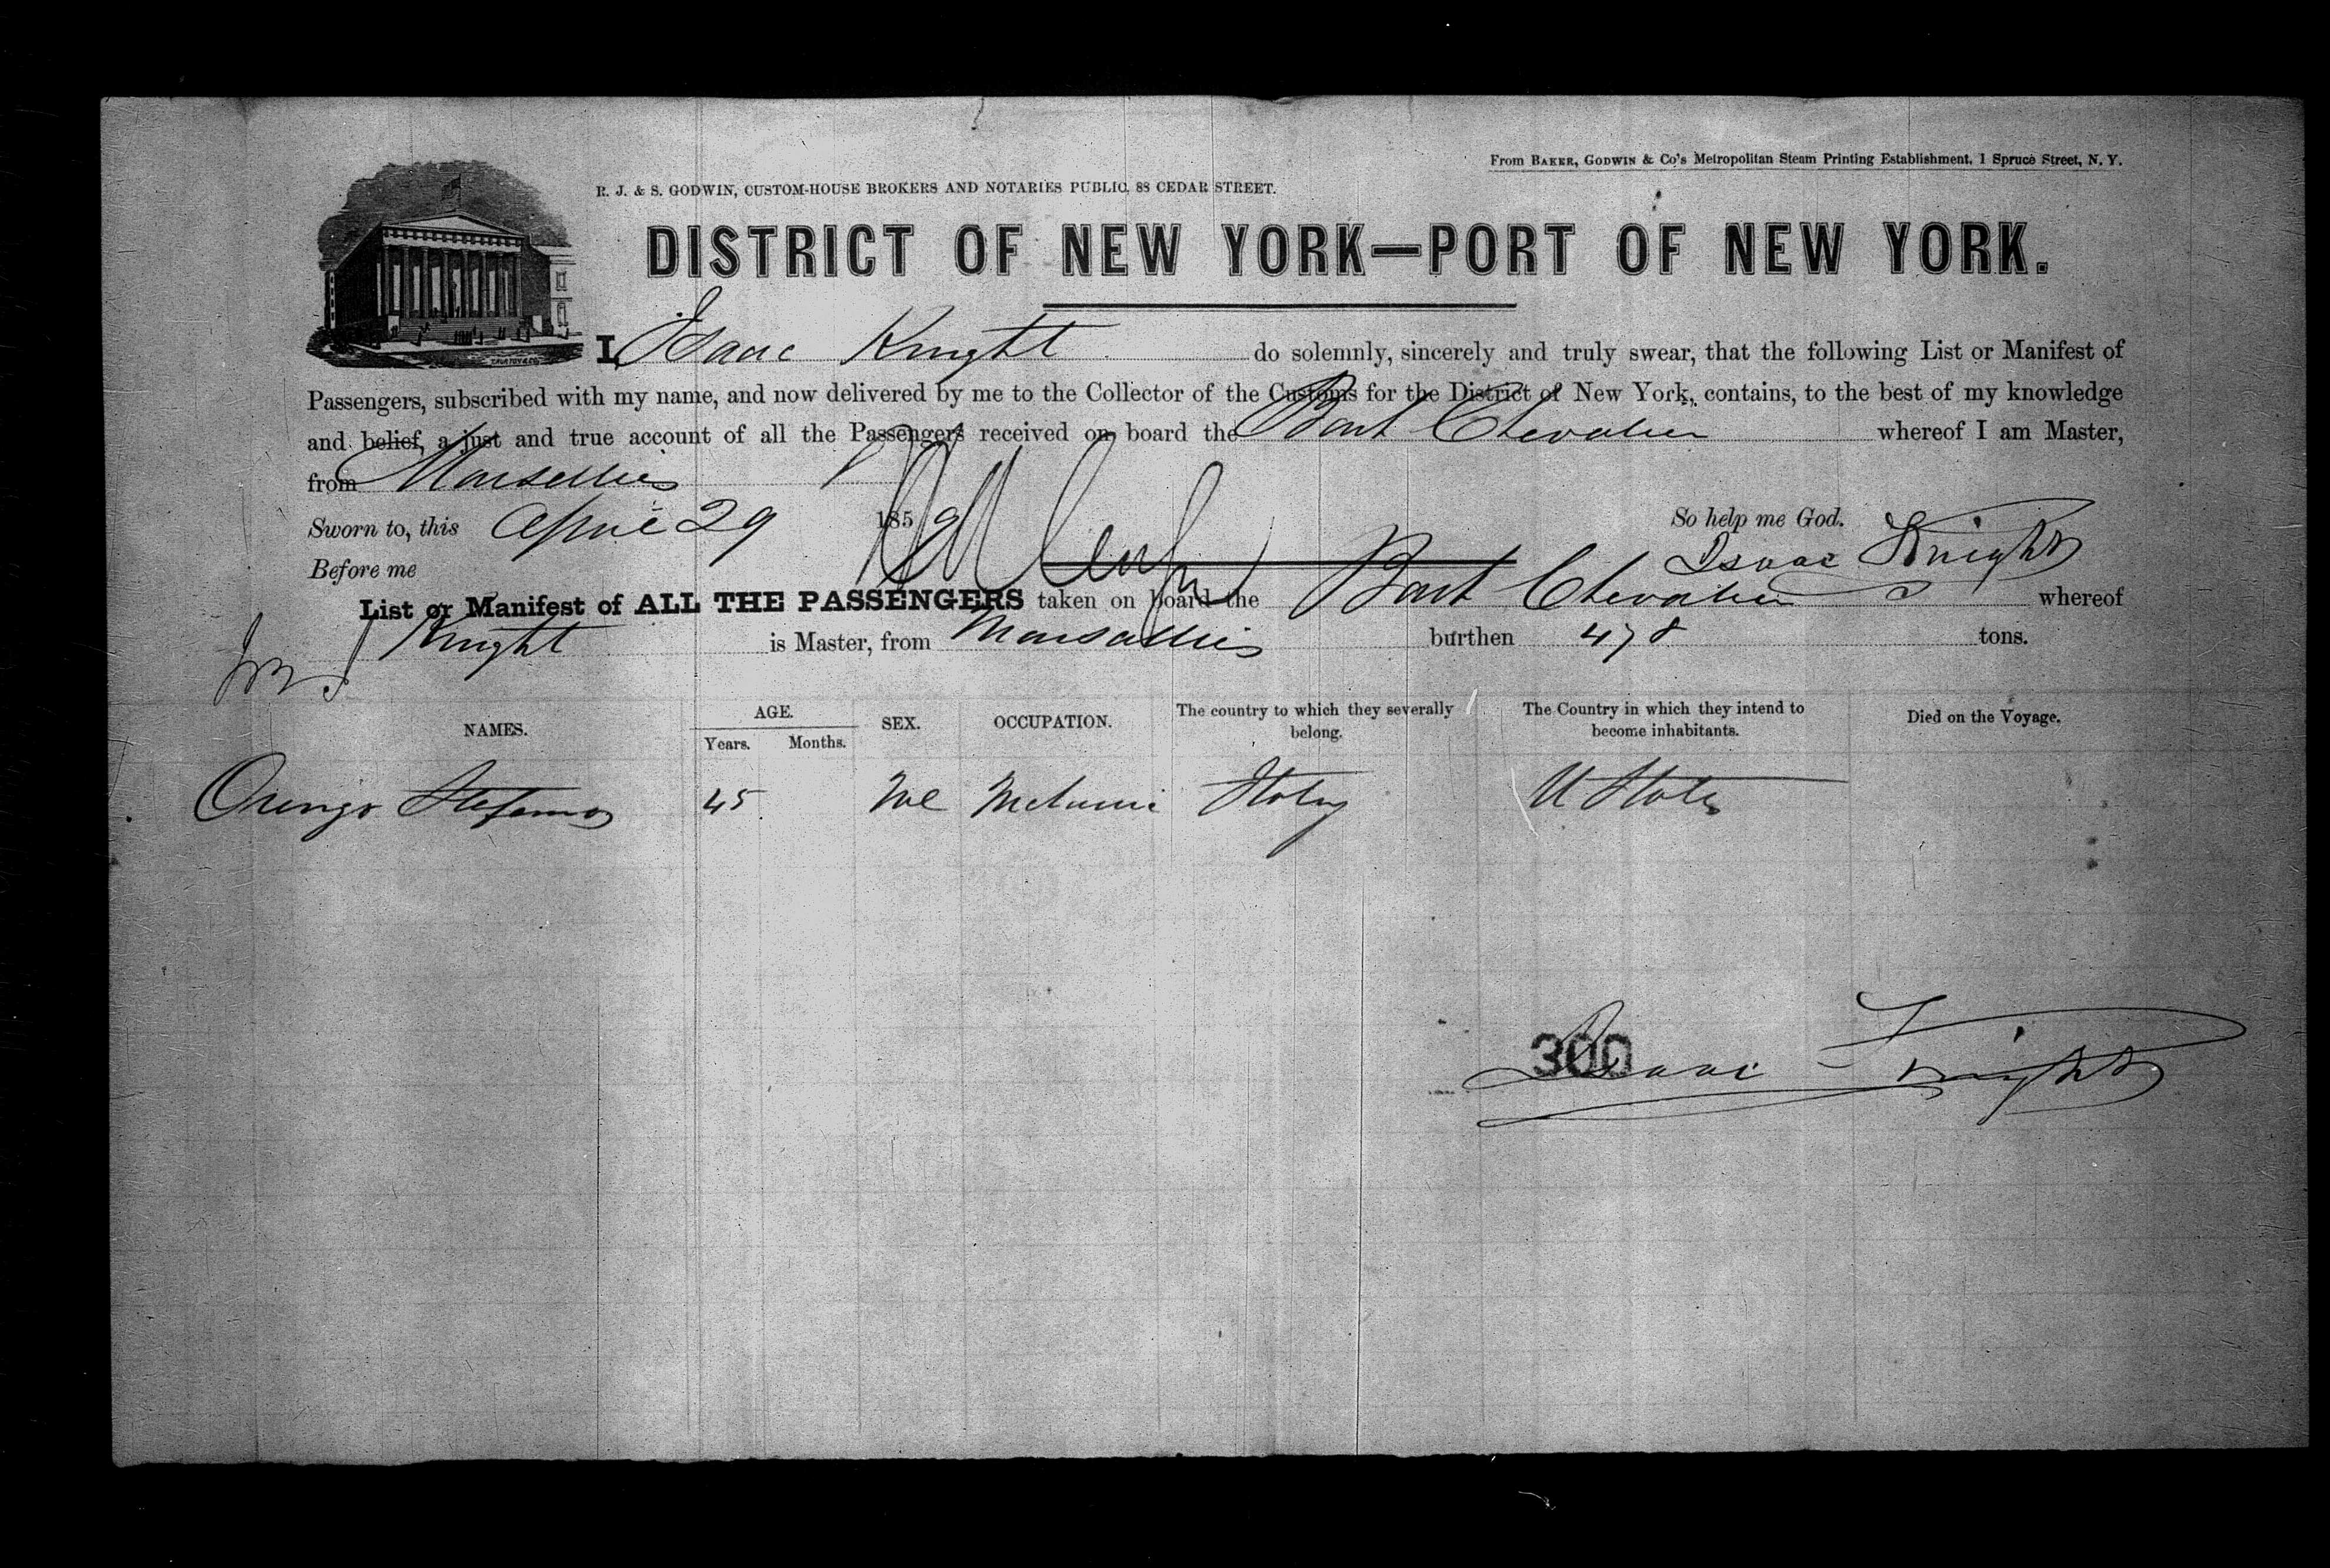 From BAKER, GODWIN & Co's Metropolitan Steam Printing Establishment, 1 Spruce Street, N. Y.
R. J. & S. GODWIN, CUSTOM-HOUSE BROKERS AND NOTARIES PUBLIC, 88 CEDAR STREET.
DISTRICT OF NEW YORK—PORT OF NEW YORK.
I, Isaac Knight do solemnly, sincerely and truly swear, that the following List or Manifest of
Passengers, subscribed with my name, and now delivered by me to the Collector of the Customs for the District of New York, contains, to the best of my knowledge
and belief, a just and true account of all the Passengers received on board the Bark Chevalier whereof I am Master,
from Marsellies
Sworn to, this April 29 1859 So help me God.
Before me Isaac Knight
List or Manifest of ALL THE PASSENGERS taken on board the Bark Chevalier whereof
Knight is Master, from Marsallies burthen 478 tons.
NAMES. AGE. Years. Months. SEX. OCCUPATION. The country to which they severally belong. The Country in which they intend to become inhabitants. Died on the Voyage.
Orengo Stefano 45 Italy U States
300
Isaac Knight